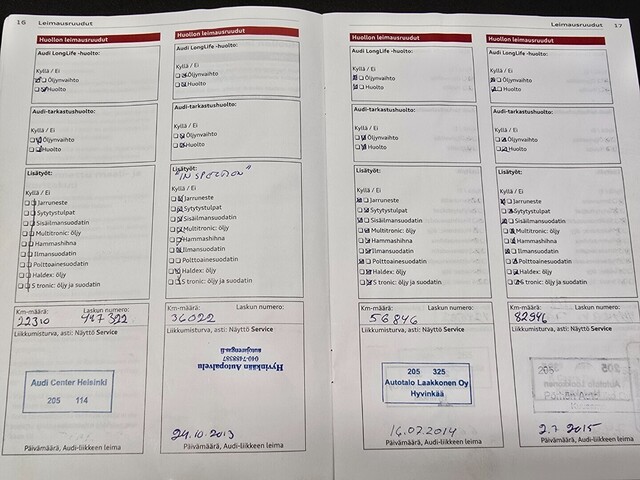 16 Leimausruudut
Huollon leimausruudut
Audi LongLife -huolto:
Kyllä / Ei
Öljynvaihto
Huolto
Audi-tarkastushuolto:
Kyllä / Ei
Öljynvaihto
Huolto
Lisätyöt:
Kyllä / Ei
Jarruneste
Sytytystulpat
Sisäilmansuodatin
Multitronic: öljy
Hammashihna
Ilmansuodatin
Polttoainesuodatin
Haldex: öljy
S tronic: öljy ja suodatin
Km-määrä: Laskun numero:
22310 497322
Liikkumisturva, asti: Näyttö Service
Audi Center Helsinki
205 114
Päivämäärä, Audi-liikkeen leima
Huollon leimausruudut
Audi LongLife -huolto:
Kyllä / Ei
Öljynvaihto
Huolto
Audi-tarkastushuolto:
Kyllä / Ei
Öljynvaihto
Huolto
Lisätyöt:
"INSPECTION"
Kyllä / Ei
Jarruneste
Sytytystulpat
Sisäilmansuodatin
Multitronic: öljy
Hammashihna
Ilmansuodatin
Polttoainesuodatin
Haldex: öljy
S tronic: öljy ja suodatin
Km-määrä: Laskun numero:
36022
Liikkumisturva, asti: Näyttö Service
Hyvinkään Autopalvelu
040-7488387
autojarengas.fi
24.10.2013
Päivämäärä, Audi-liikkeen leima
Leimausruudut 17
Huollon leimausruudut
Audi LongLife -huolto:
Kyllä / Ei
Öljynvaihto
Huolto
Audi-tarkastushuolto:
Kyllä / Ei
Öljynvaihto
Huolto
Lisätyöt:
Kyllä / Ei
Jarruneste
Sytytystulpat
Sisäilmansuodatin
Multitronic: öljy
Hammashihna
Ilmansuodatin
Polttoainesuodatin
Haldex: öljy
S tronic: öljy ja suodatin
Km-määrä: Laskun numero:
56846
Liikkumisturva, asti: Näyttö Service
205 325
Autotalo Laakkonen Oy
Hyvinkää
16.07.2014
Päivämäärä, Audi-liikkeen leima
Huollon leimausruudut
Audi LongLife -huolto:
Kyllä / Ei
Öljynvaihto
Huolto
Audi-tarkastushuolto:
Kyllä / Ei
Öljynvaihto
Huolto
Lisätyöt:
Kyllä / Ei
Jarruneste
Sytytystulpat
Sisäilmansuodatin
Multitronic: öljy
Hammashihna
Ilmansuodatin
Polttoainesuodatin
Haldex: öljy
S tronic: öljy ja suodatin
Km-määrä: Laskun numero:
82946
Liikkumisturva, asti: Näyttö Service
205
2.7.2015
Päivämäärä, Audi-liikkeen leima